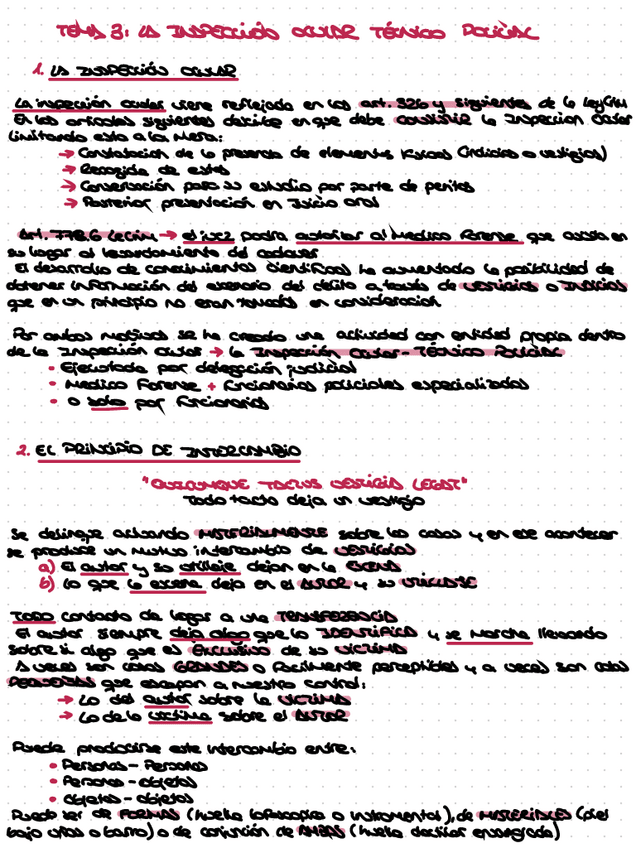 TEMA 3: LA INSPECCIÓN OCULAR TÉCNICO POLICIAL
1. LA INSPECCIÓN OCULAR
La inspección ocular viene reflejada en los art. 326 y siguientes de la LeyCrim
En los artículos siguientes describe en que debe consistir la Inspeccion Ocular
limitando esta a la mera:
→ Constatación de la presencia de elementos físicos (indicios o vestigios)
→ Recogida de estos
→ Conservación para su estudio por parte de peritos
→ Posterior presentación en Juicio oral
Art. 778.6 Lecrim → el juez podra autorizar al Medico Forense que asista en
su lugar al levantamiento del cadaver
El desarrollo de conocimientos científicos ha aumentado la posibilidad de
obtener información del escenario del delito a través de VESTIGIOS o INDICIOS
que en un principio no eran tomados en consideración
Por ambos motivos se ha creado una actividad con entidad propia dentro
de la Inspección Ocular → la Inspección Ocular-TÉCNICO POLICIAL
• Ejecutada por delegación judicial
• Medico Forense + funcionarios policiales especializados
• o solo por funcionarios
2. EL PRINCIPIO DE INTERCAMBIO
"QUICUMQUE TACTUS VESTIGIA LEGAT"
Todo tacto deja un vestigio
Se delinque actuando MATERIALMENTE sobre las cosas y en ese acontecer
se produce un mutuo intercambio de VESTIGIOS
a) El autor y su utillaje dejan en la ESCENA
b) lo que la escena deja en el AUTOR y su UTILLAJE
TODO contacto da lugar a una TRANSFERENCIA
El autor siempre deja algo que lo IDENTIFICA y se marcha llevando
sobre si algo que es EXCLUSIVO de su VICTIMA
A veces son cosas GRANDES o facilmente perceptibles y a veces son cosas
PEQUEÑAS que escapan a nuestro control:
→ Lo del autor sobre la VICTIMA
→ Lo de la victima sobre el AUTOR
Puede producirse este intercambio entre:
• Personas - Personas
• Personas - objetos
• objetos - objetos
Puede ser de FORMAS (huella lofoscopica o instrumental), de MATERIALES (piel
bajo uñas o barro) o de conjunción de AMBAS (huella dactilar ensangrentada)